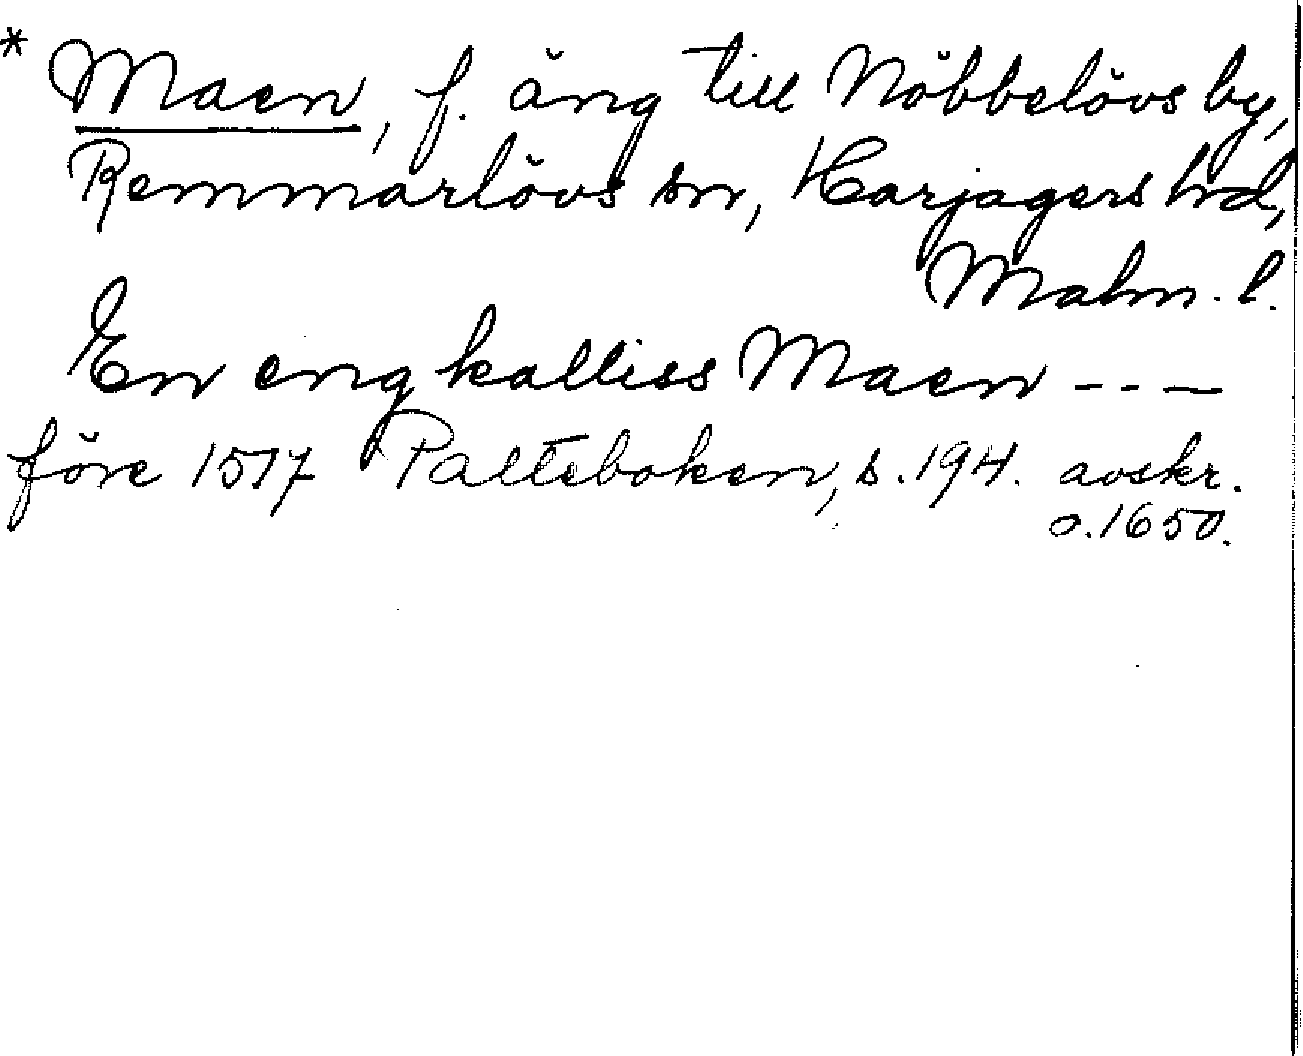 * Maen, f. äng till Nöbbelövs by,
Remmarlövs sn, Harjagers hd,
Malm. l.
En eng kalliss Maen - - -
före 1517 Palteboken, s. 194. avskr.
o. 1650.